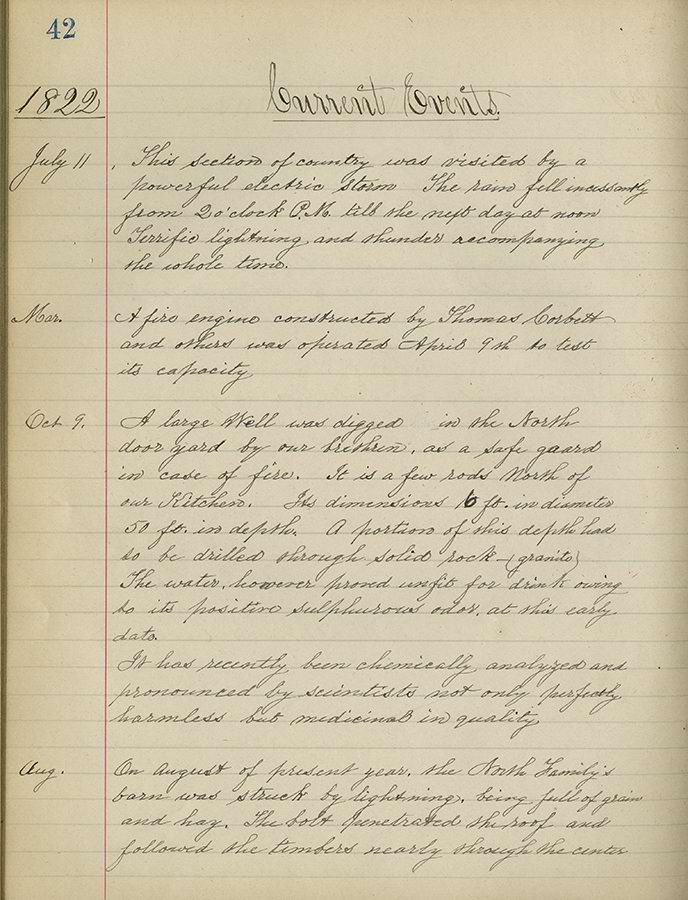 42
1822 Current Events.
July 11, This section of country was visited by a
powerful electric storm The rain fell incessantly
from 2 o'clock P.M. till the next day at noon
Terrific lightning and thunder accompanying
the whole time.
Mar. A fire engine constructed by Thomas Corbett
and others was operated April 9th to test
its capacity
Oct 9. A large Well was digged in the North
door yard by our brethren, as a safe gaard
in case of fire. It is a few rods North of
our Kitchen. Its dimensions 16 ft. in diameter
50 ft. in depth. A portion of this depth had
to be drilled through solid rock - (granite)
The water, however proved unfit for drink owing
to its positive sulphurous odor, at this early
date.
It has recently been chemically analyzed and
pronounced by scientists not only perfectly
harmless but medicinal in quality
Aug. On August of present year, the North Family's
barn was struck by lightning, being full of grain
and hay. The bolt penetrated the roof and
followed the timbers nearly through the center